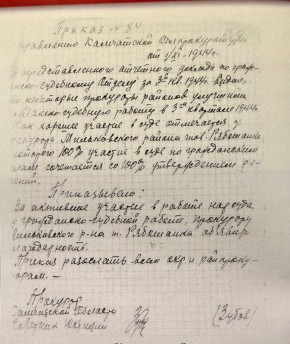 Приказ № 84
управлению Камчатской Облпрокуратуры
от 1/XI-1944 г.
представленного отчетного доклада по граж-
судебному Отделу за 3й кв 1944 г. видно,
что некоторые прокуроры районов улучшили
судебную работу в 3ем квартале 1944
хорошее участие в суде отмечается у
прокурора Мильковского района тов. Рябошапка
которого 100% участие в суде по гражданским
делам сочетается со 100% утверждением ре-
шений.
Приказываю:
За активное участие в работе нарсуда
гражданско-судебной работе, прокурору
Мильковского р-на т. Рябошапка объявляю
благодарность.
Приказ разослать всем окр и райпроку-
рорам. —
Прокурор
Камчатской Области
Советник Юстиции (Зубов)